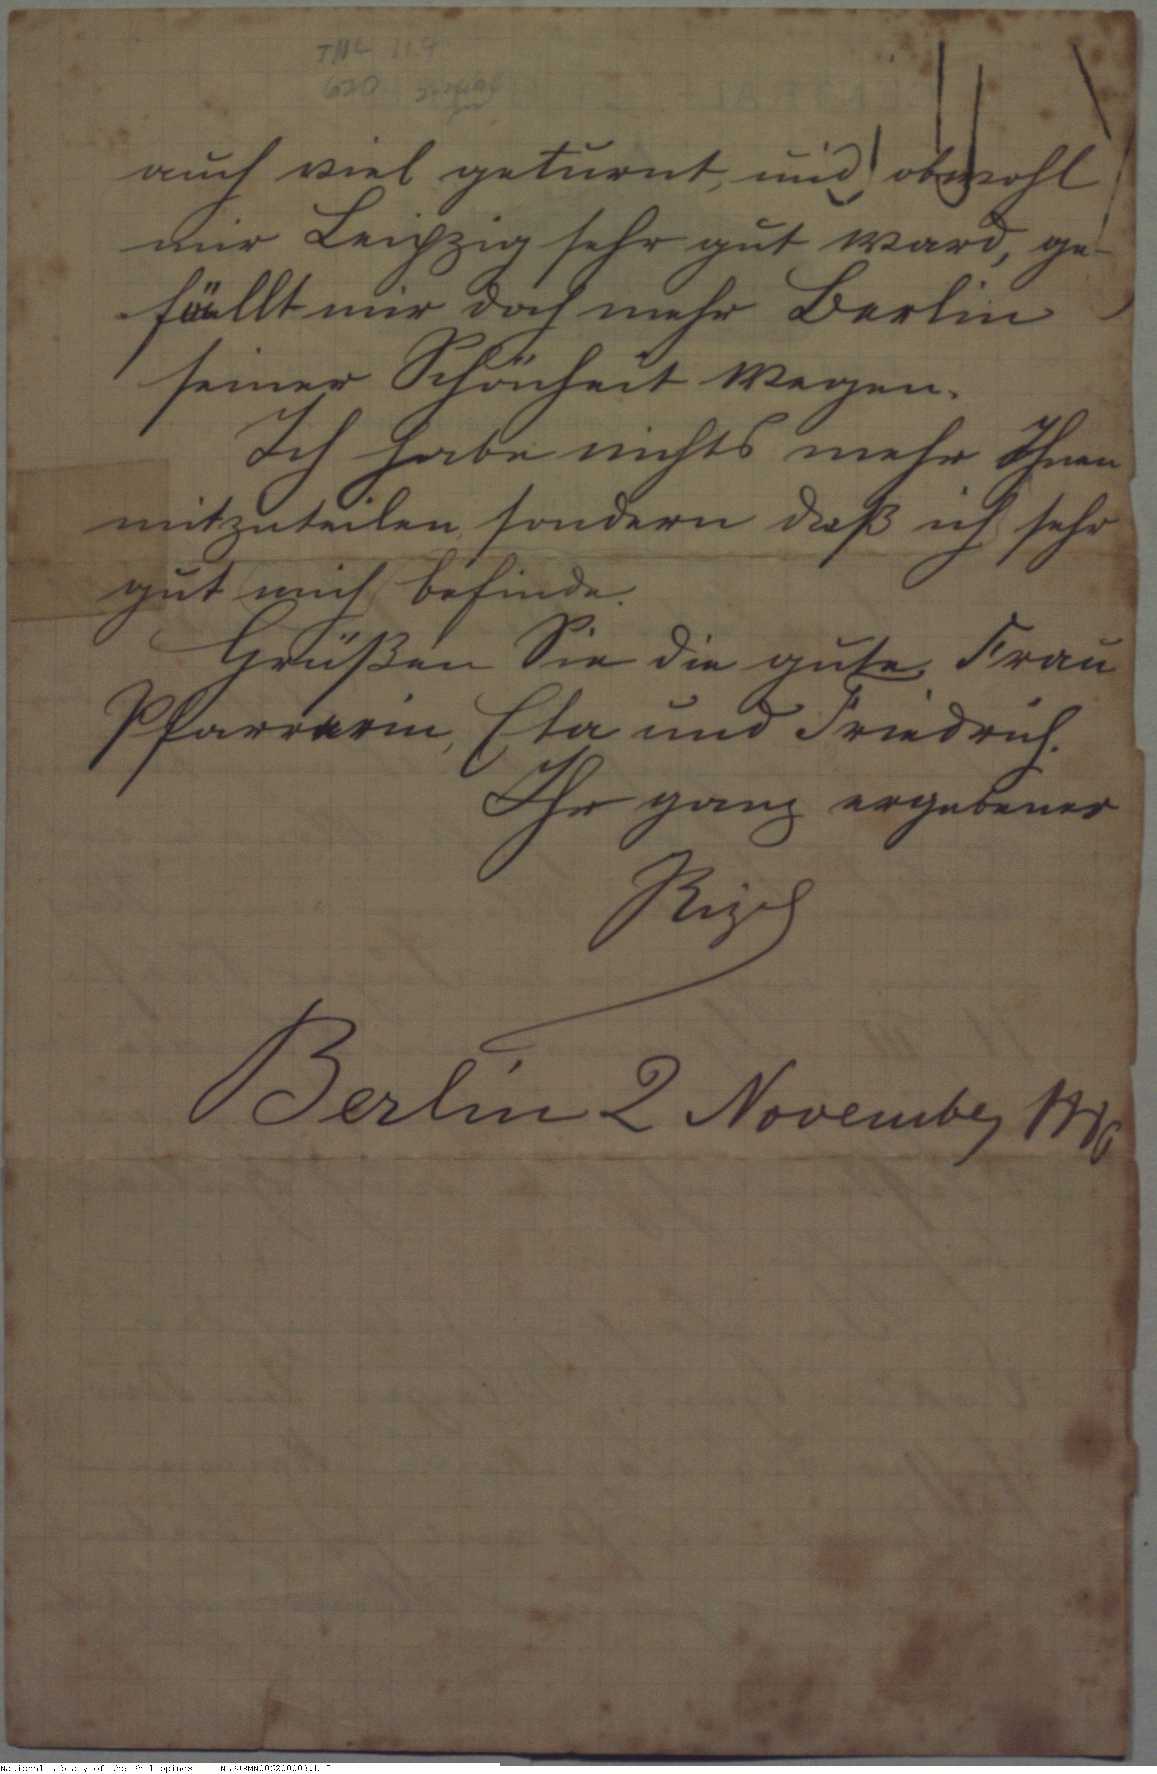 auch viel geturnt, und obwohl
mir Leipzig sehr gut ward, ge-
fällt mir doch mehr Berlin
seiner Schönheit wegen.
Ich habe nichts mehr Ihnen
mitzuteilen, sondern daß ich sehr
gut mich befinde.
Grüßen Sie die gute Frau
Pfarrerin, Eta und Friedrich.
Ihr ganz ergebener
Rizal
Berlin 2 November 1886
National Library of the Philippines